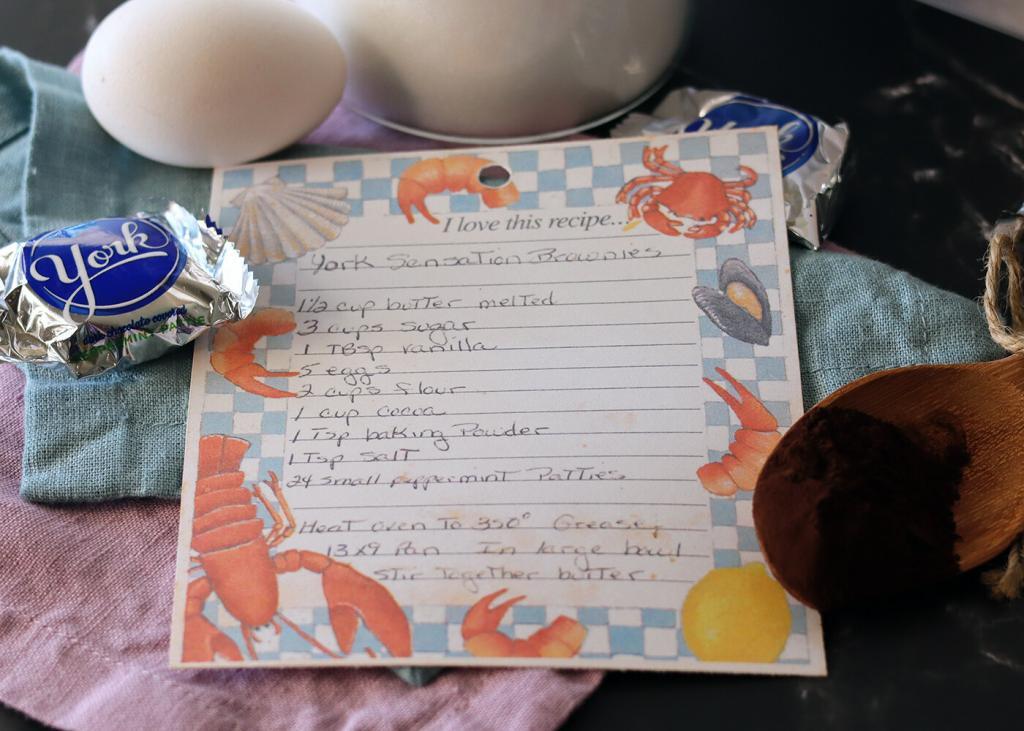 York
I love this recipe...
York Sensation Brownies
1 1/2 cup butter melted
3 cups sugar
1 TBsp vanilla
5 eggs
2 cups flour
1 cup cocoa
1 Tsp baking Powder
1 Tsp salt
24 small peppermint Patties
Heat oven To 350° Grease
13x9 Pan In large bowl
stir Together butter
York
chocolate covered